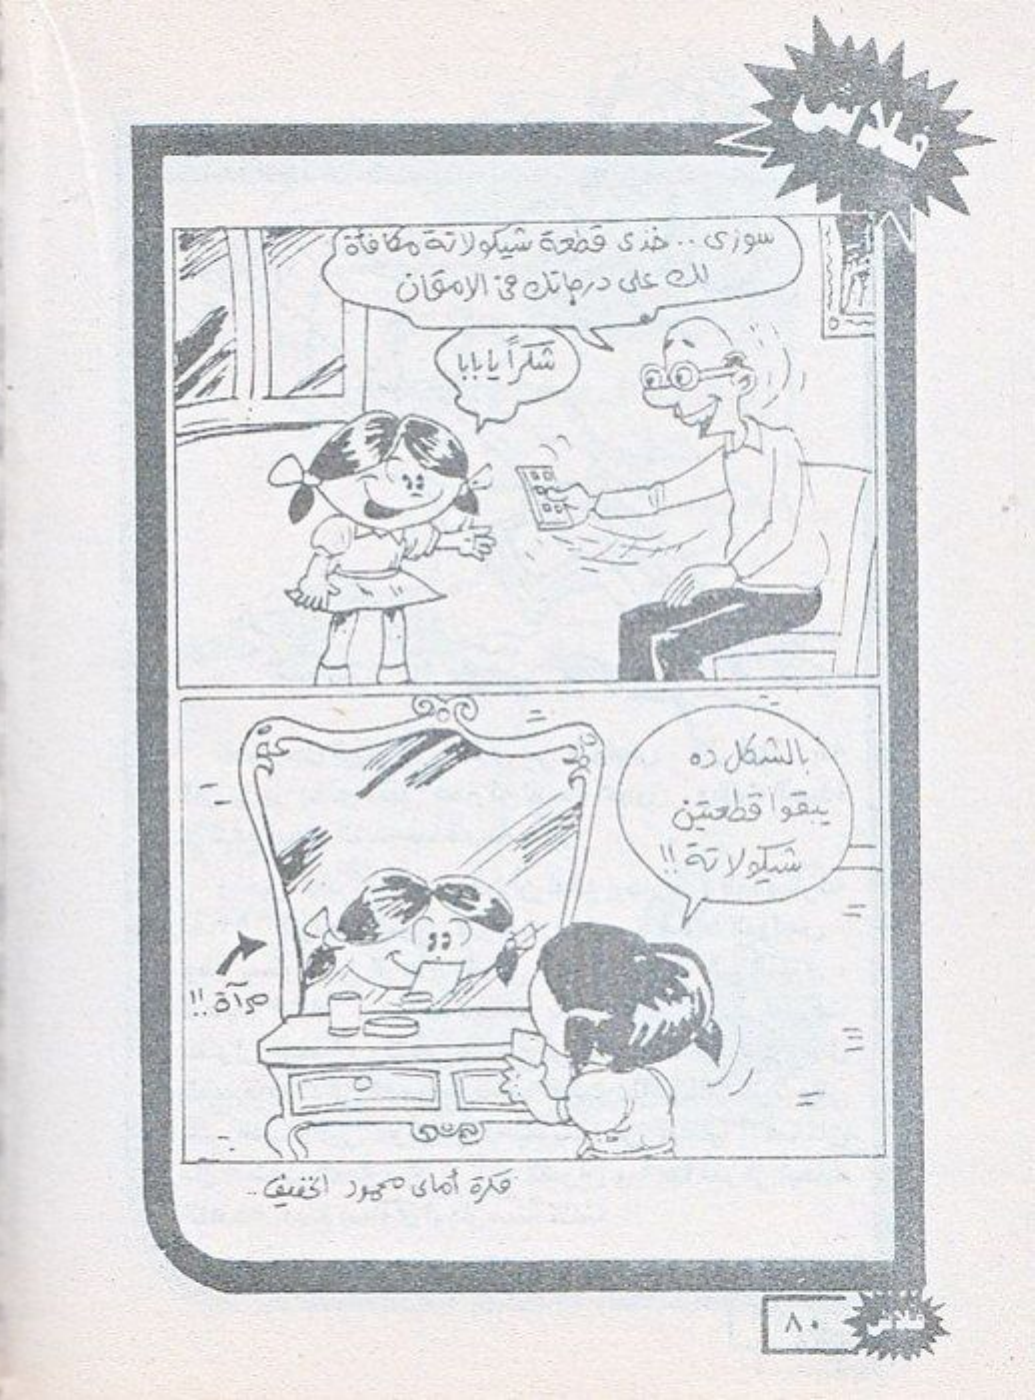 فلاش
سوزى .. خذى قطعة شيكولاتة مكافأة
لك على درجاتك فى الامتحان
شكراً يا بابا
بالشكل ده
يبقوا قطعتين
شيكولاتة !!
مرآة !!
فكرة أمانى محمود الخفيف ..
٨٠
فلاش